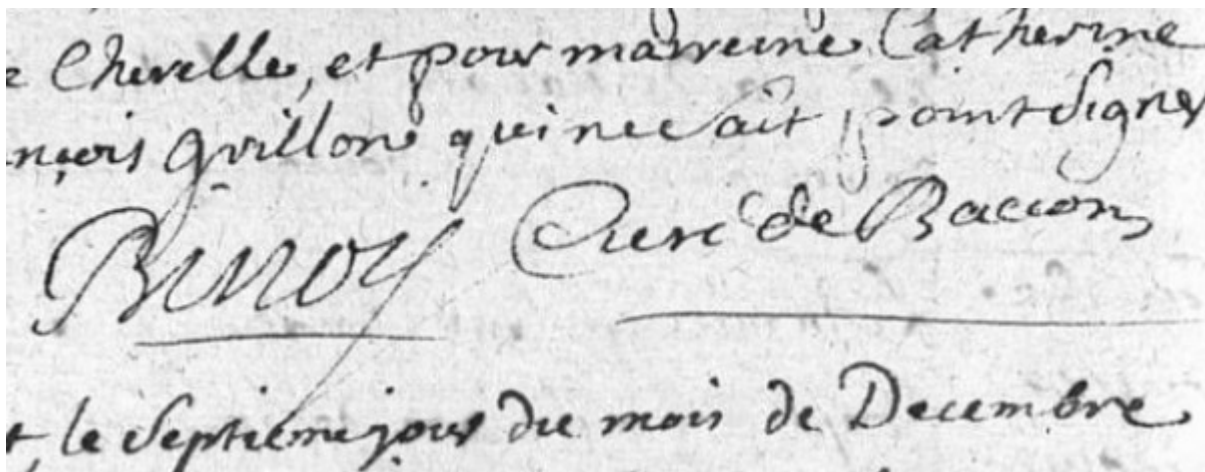 e Cherelle, et pour marreine Catherine
nçois Guillon qui ne sait point signer
Binoy Curé de Baccon
le septieme jour du mois de Decembre